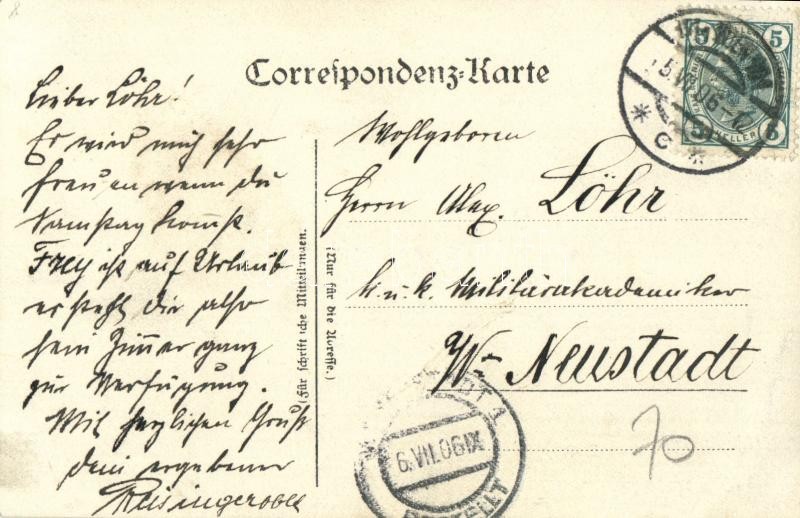 8
Correspondenz-Karte
Lieber Löhr!
Es wird mich sehr
freuen wenn du
Samstag kommst.
Frey ist auf Urlaub
es steht dir also
sein Zimmer ganz
zur Verfügung.
Mit herzlichen Gruß
dein ergebener
(Für schriftliche Mitteilungen.
(Nur für die Adresse.)
Wohlgeboren
Herrn Alex. Löhr
k. u. k. Militärakademiker
W.-Neustadt
70
5 5
5 HELLER 5
5.VII.06
* C *
6.VII.06 IX
BESTELLT